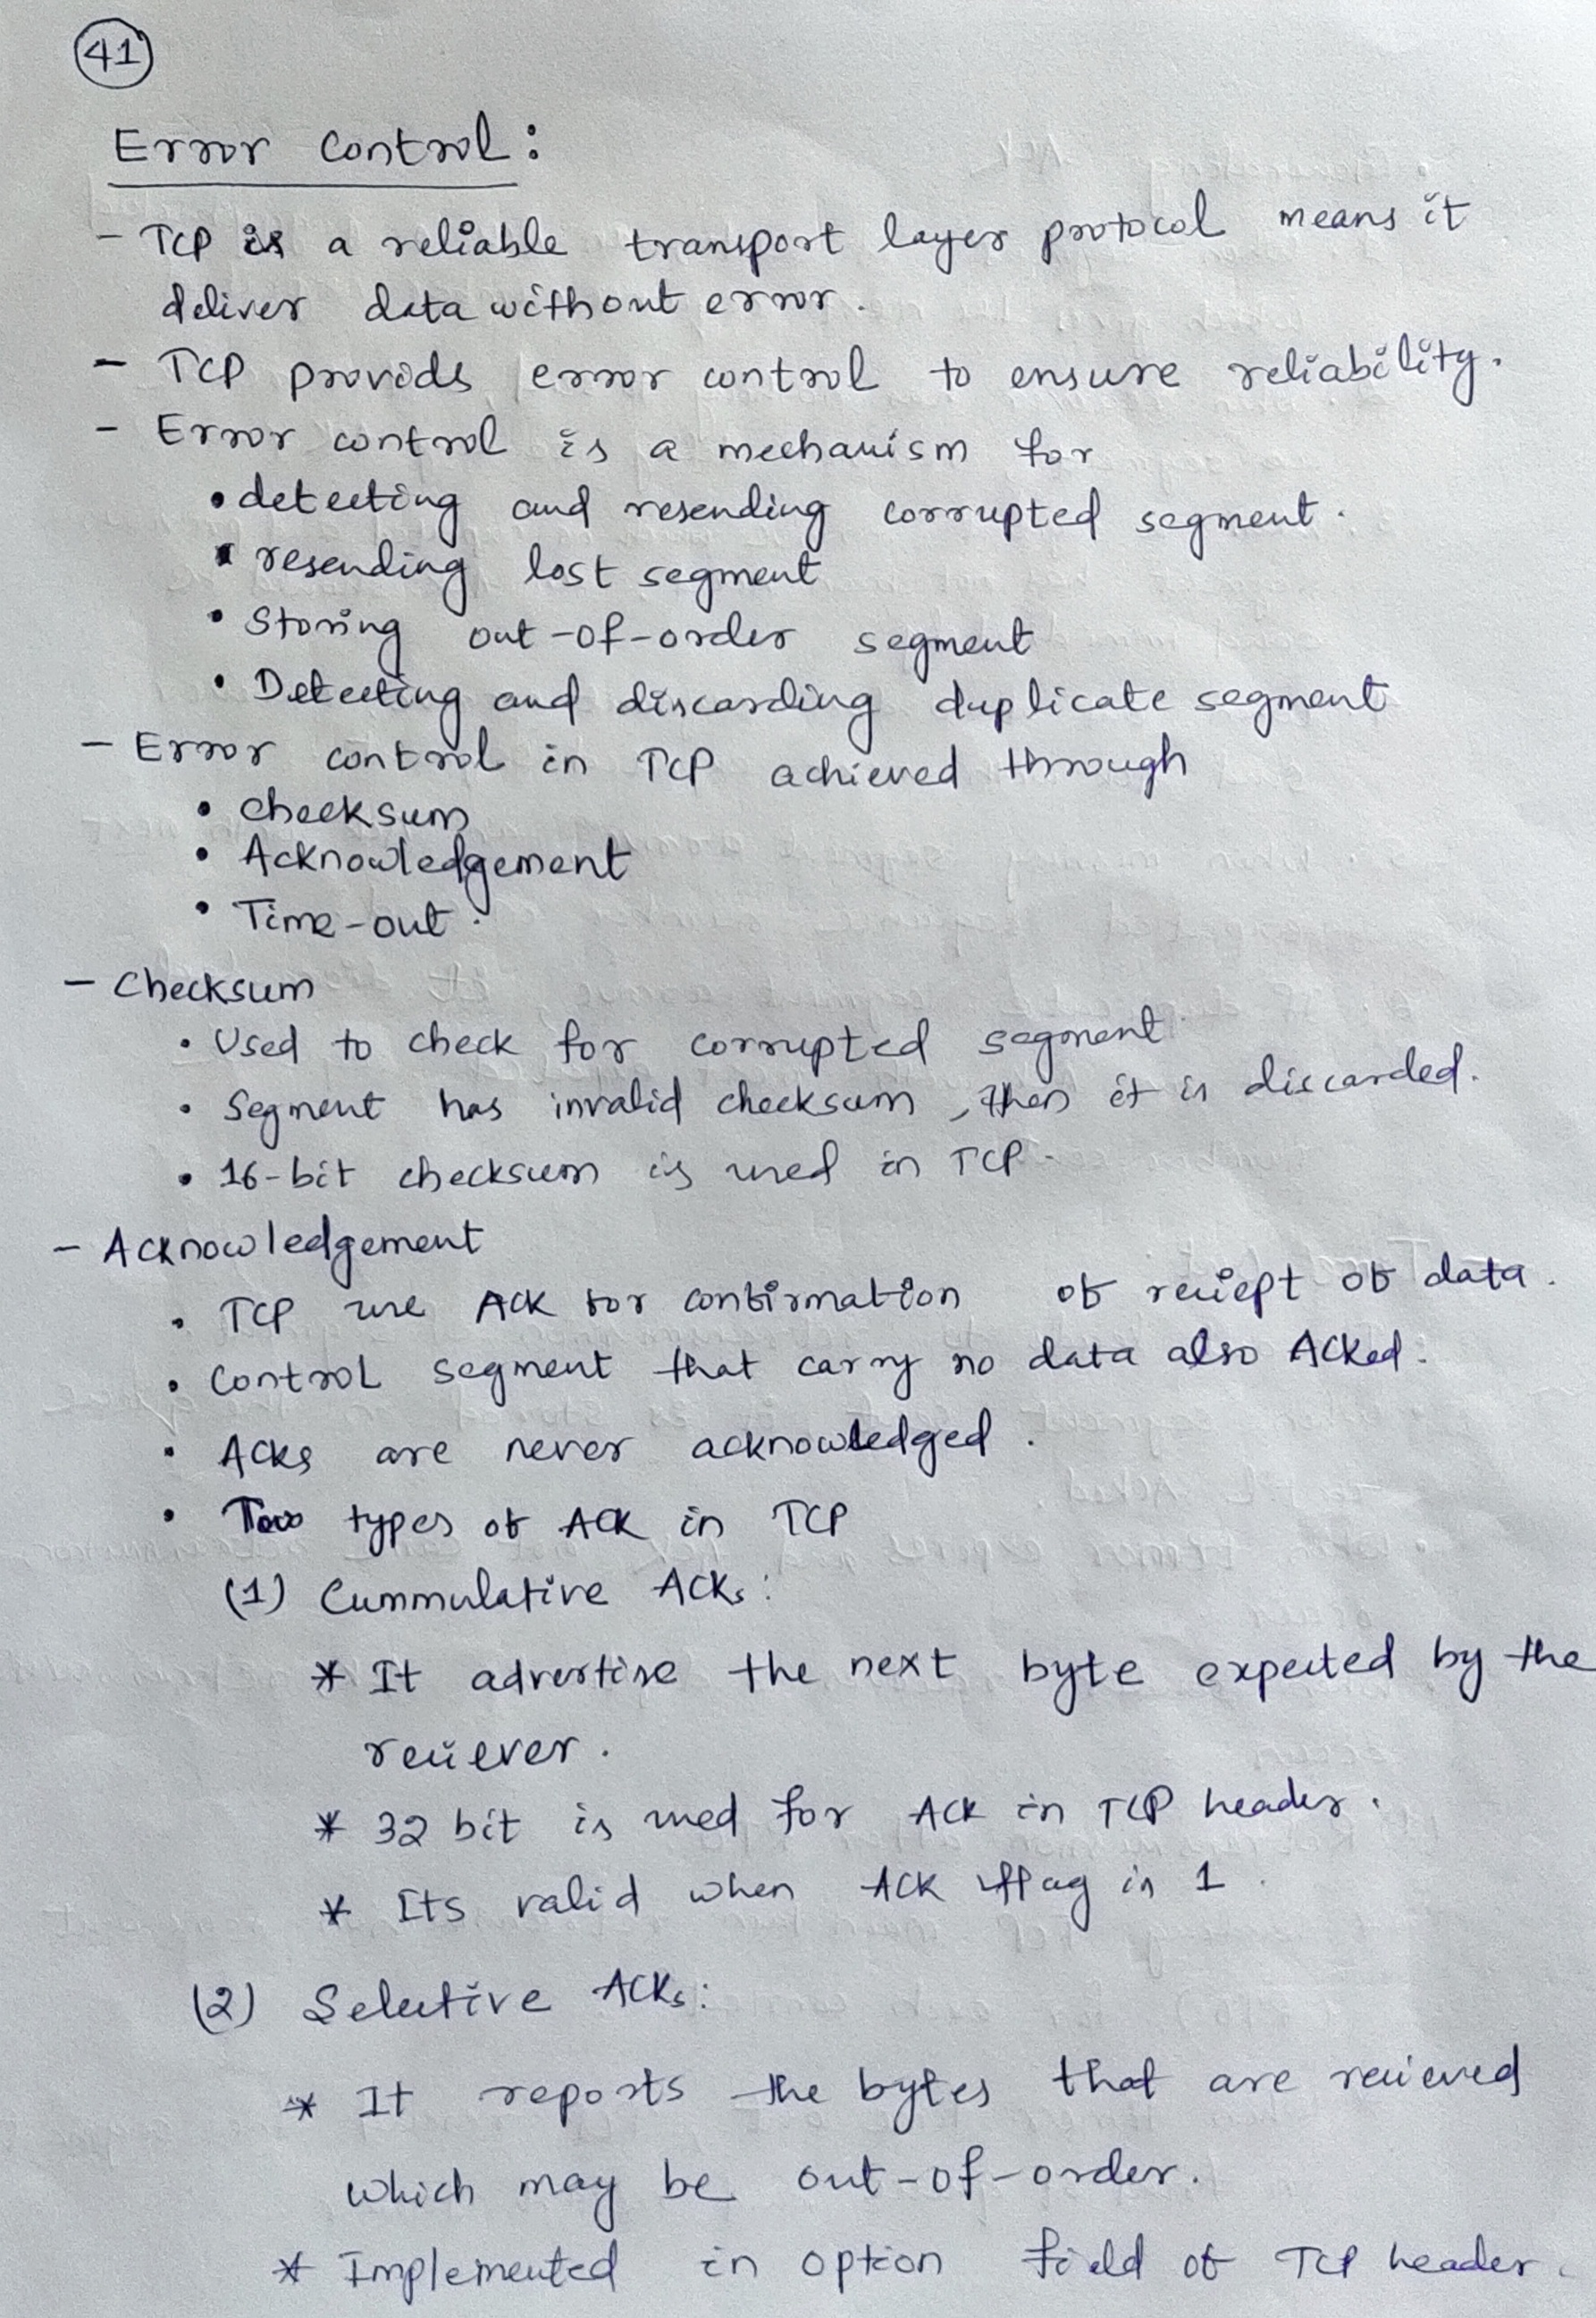 41
Error control:
- TCP is a reliable transport layer protocol means it
deliver data without error.
- TCP provids error control to ensure reliability.
- Error control is a mechanism for
• detecting and resending corrupted segment.
• resending lost segment
• Storing out-of-order segment
• Detecting and discarding duplicate segment
- Error control in TCP achieved through
• checksum
• Acknowledgement
• Time-out.
- Checksum
• Used to check for corrupted segment
• Segment has invalid checksum, then it is discarded.
• 16-bit checksum is used in TCP.
- Acknowledgement
• TCP use ACK for confirmation of reciept of data.
• Control segment that carry no data also ACKed.
• ACKs are never acknowledged.
• Two types of ACK in TCP
(1) Cummulative ACKs:
* It advertise the next byte expected by the
reciever.
* 32 bit is used for ACK in TCP header.
* Its valid when ACK flag is 1.
(2) Selective ACKs:
* It reports the bytes that are recieved
which may be out-of-order.
* Implemented in option field of TCP header.